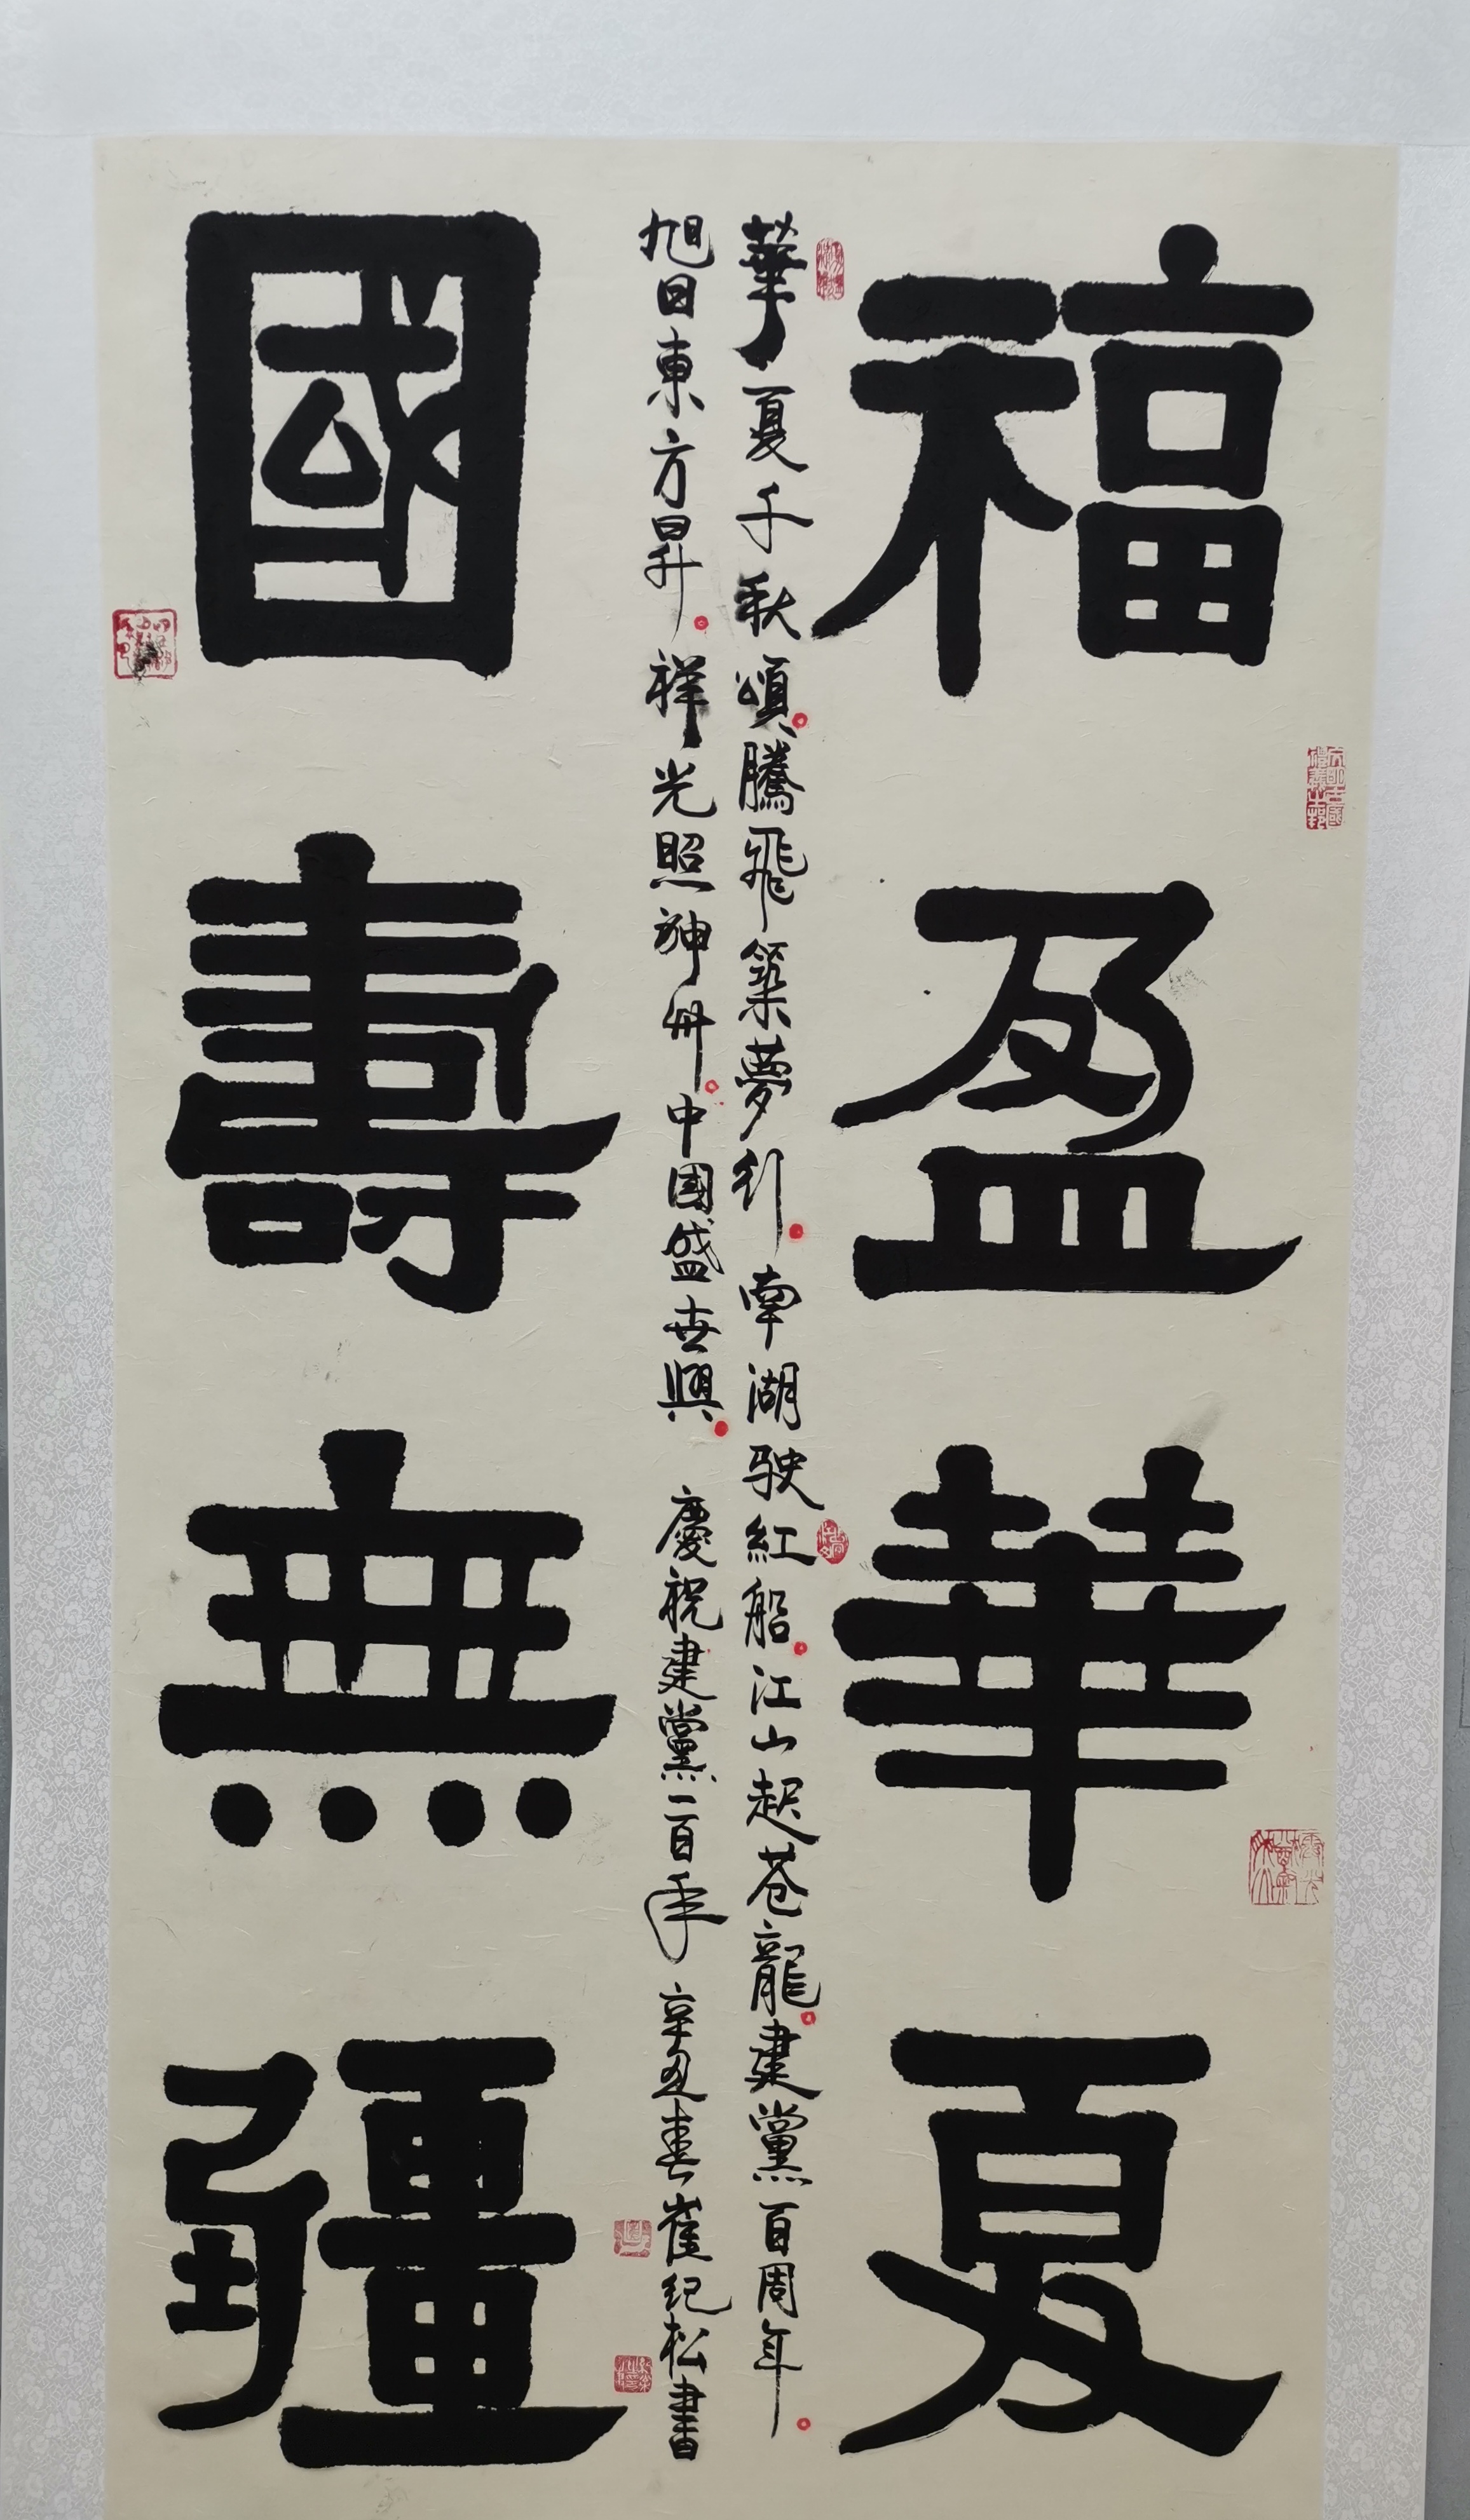 福盈華夏
華夏千秋頌騰飛築夢行南湖驶紅船江山起苍龍建黨百周年
旭日東方昇祥光照神州中國盛世興 慶祝建黨一百年 辛丑春崔纪松書
國壽無疆